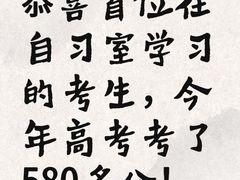 恭喜首位在
自习室学习
的考生，今
年高考考了
580多分！